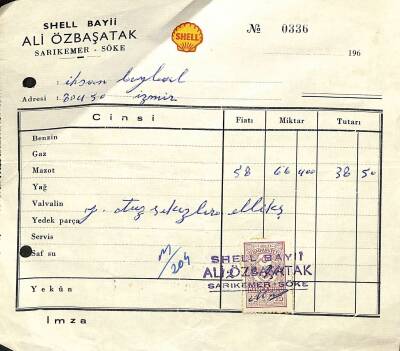 SHELL BAYİİ
ALİ ÖZBAŞATAK
SARIKEMER - SÖKE
SHELL
№ 0336
196
ihsan
Adresi : izmir
Cinsi Fiatı Miktar Tutarı
Benzin
Gaz
Mazot 58 66 400 38 50
Yağ
Valvalin
Yedek parça
Servis
Saf su
M/204
SHELL BAYİİ
ALİ ÖZBAŞATAK
SARIKEMER - SÖKE
Yekûn
İmza